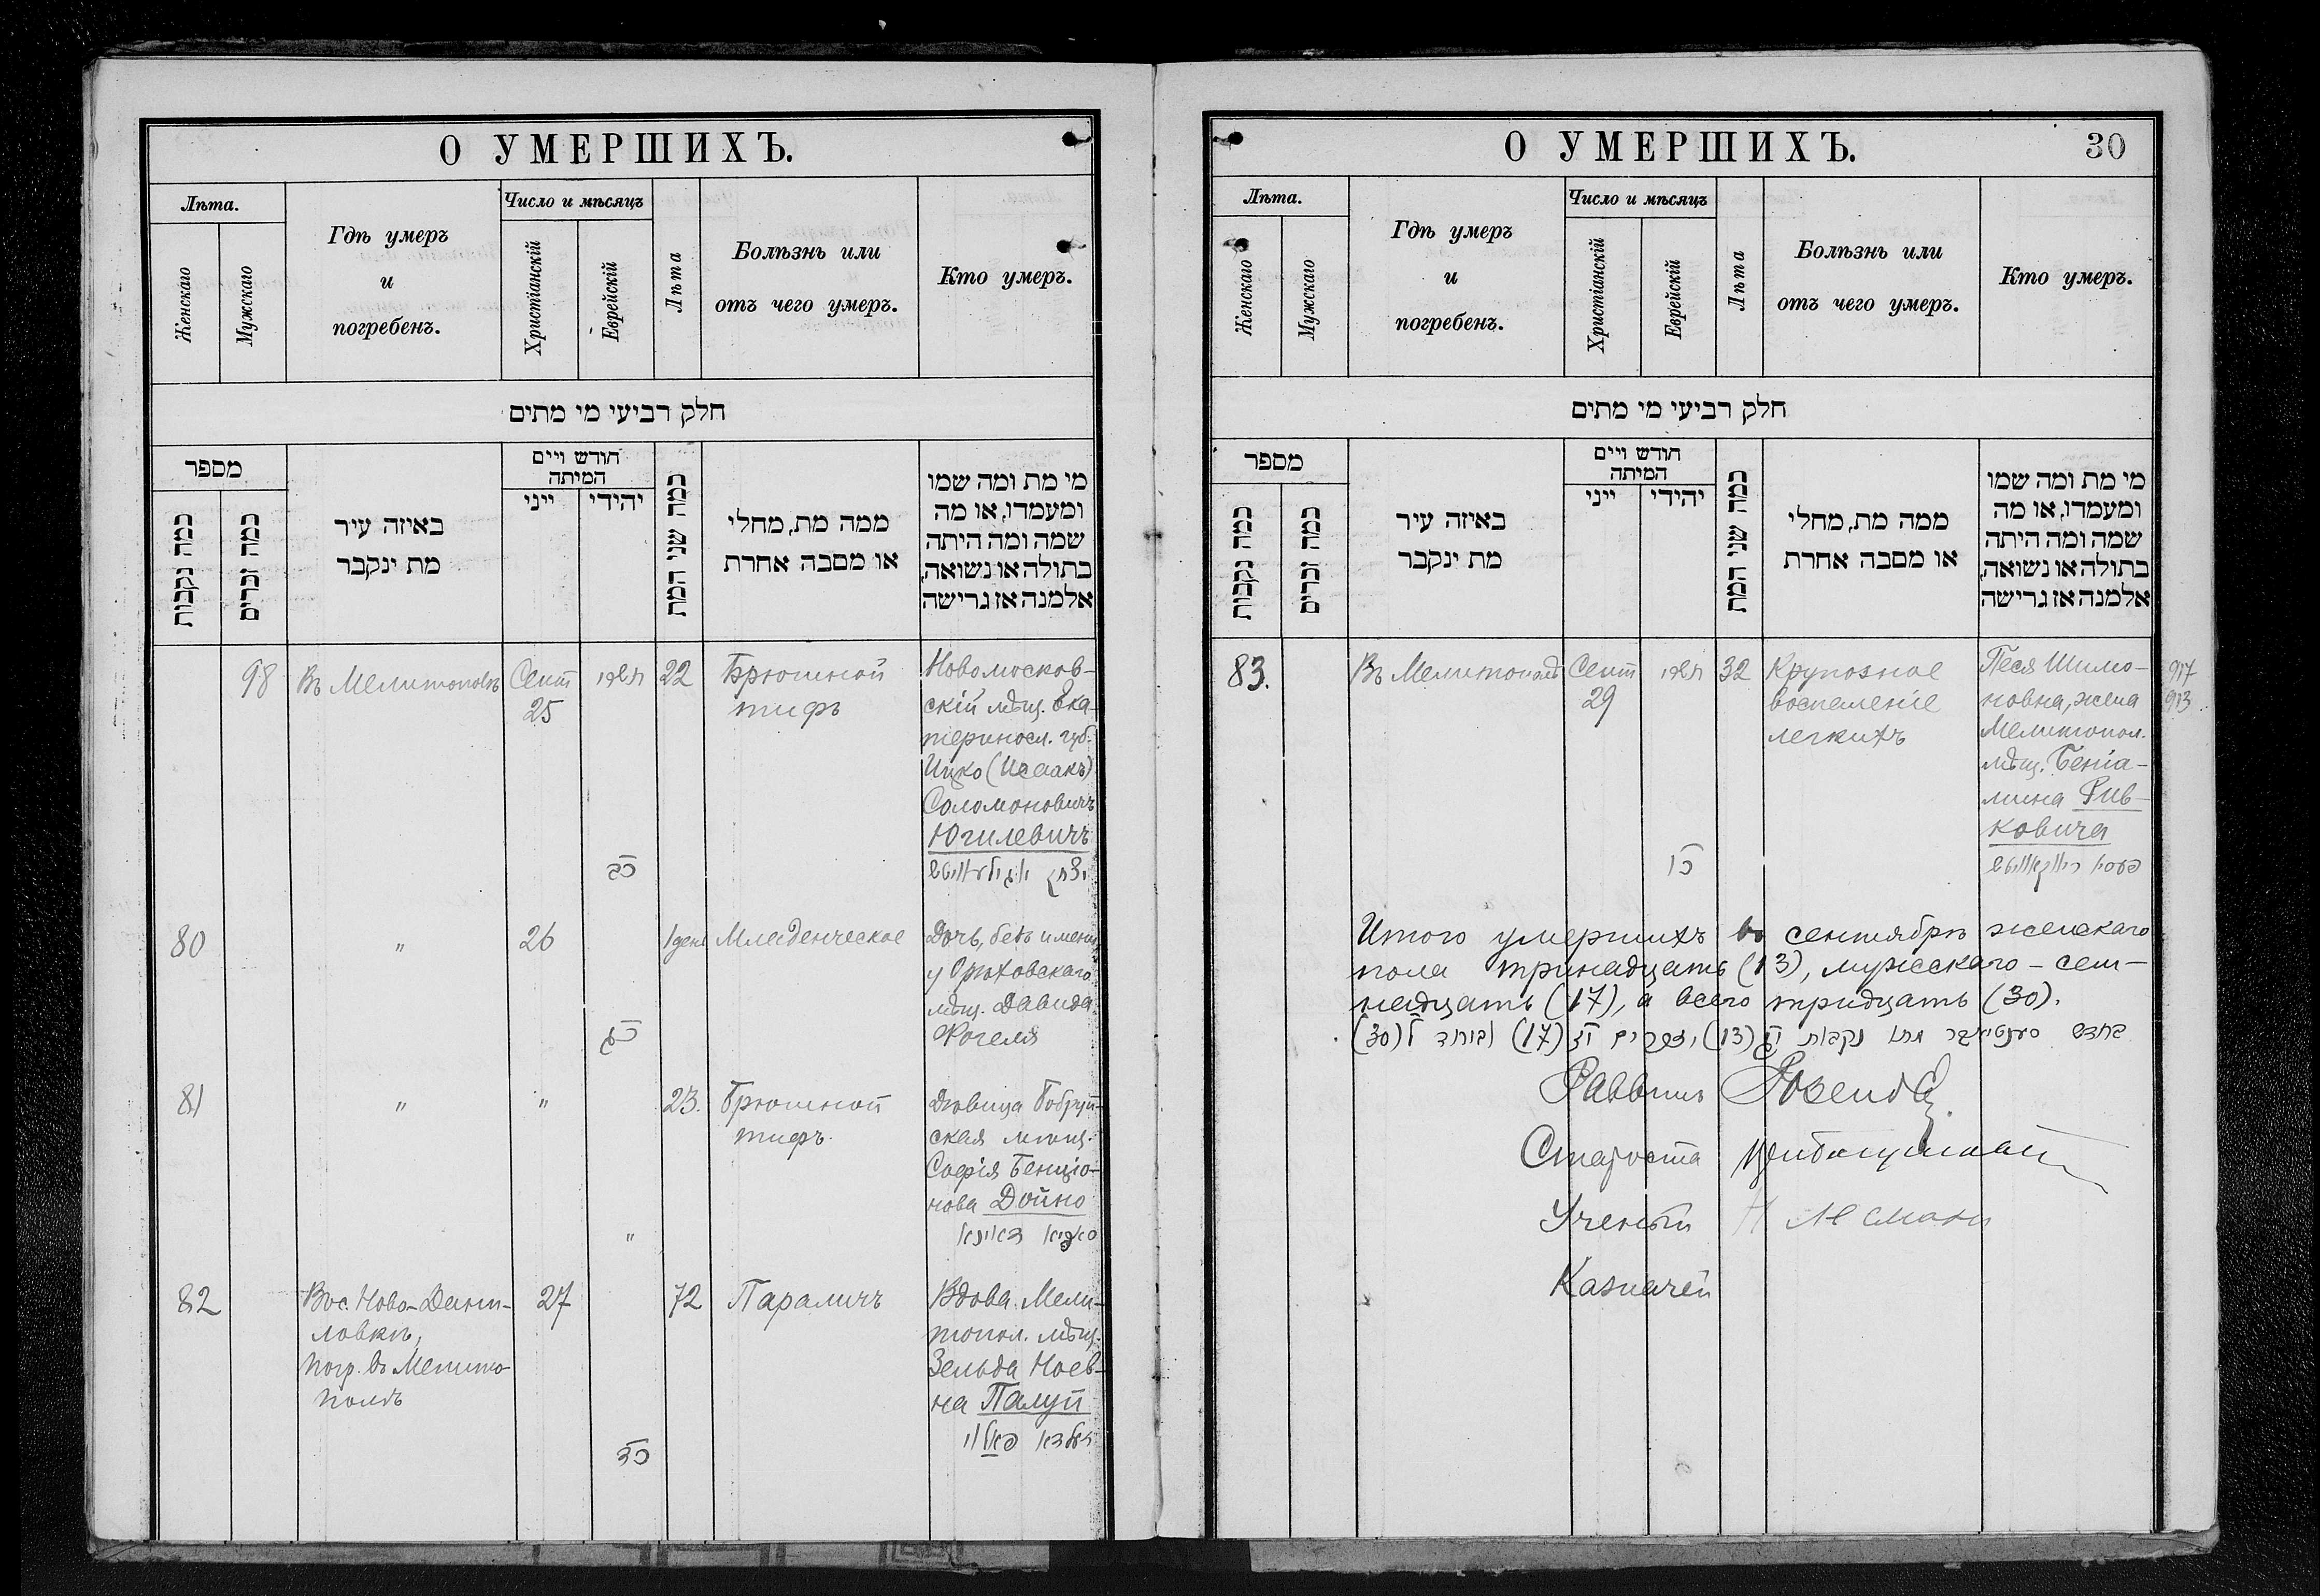 О УМЕРШИХЪ.
Лѣта.
Женскаго
Мужскаго
Гдѣ умеръ
и
погребенъ.
Число и мѣсяцъ
Христіанскій
Еврейскій
Лѣта
Болѣзнь или
отъ чего умеръ.
Кто умеръ.
חלק רביעי מי מתים
מספר
כמה נקבות
כמה זכרים
באיזה עיר
מת ינקבר
חודש ויים
המיתה
ייני
יהידי
כמה שני המת
ממה מת, מחלי
או מסבה אחרת
מי מת ומה שמו
ומעמדו, או מה
שמה ומה היתה
בתולה או נשואה,
אלמנה אז גרישה
98
Въ Мелитополѣ
Сент
25
כב
22
Брюшной
тифъ
Новомосков-
скій мѣщ. Ека-
теринosл. губ.
Ицко (Исаакъ)
Соломоновичъ
Югилевичъ
80
"
26
כג
1 день
Младенческое
Дочь, безъ имени,
у Орѣховскаго
мѣщ. Давида
Фогеля
81
"
"
"
23.
Брюшной
тифъ.
Дѣвица Бобруй-
ская мѣщ.
Софія Бенціо-
нова Дойно
82
Въ с. Ново-Дани-
ловкѣ,
погр. въ Мелито-
полѣ
27
כד
72
Параличъ
Вдова Мели-
топол. мѣщ.
Зельда Ноев-
на Палуй
О УМЕРШИХЪ.
30
Лѣта.
Женскаго
Мужскаго
Гдѣ умеръ
и
погребенъ.
Число и мѣсяцъ
Христіанскій
Еврейскій
Лѣта
Болѣзнь или
отъ чего умеръ.
Кто умеръ.
חלק רביעי מי מתים
מספר
כמה נקבות
כמה זכרים
באיזה עיר
מת ינקבר
חודש ויים
המיתה
ייני
יהידי
כמה שני המת
ממה מת, מחלי
או מסבה אחרת
מי מת ומה שמו
ומעמדו, או מה
שמה ומה היתה
בתולה או נשואה,
אלמנה אז גרישה
83.
Въ Мелитополѣ
Сент
29
כו
32
Крупозное
воспаленіе
легкихъ
Песя Шимо-
новна, жена
Мелитопол.
мѣщ. Бенiа-
мина Рив-
ковича
917
913
Итого умершихъ въ сентябрѣ женскаго
пола тринадцать (13), мужескаго - сем-
надцать (17), а всего тридцать (30).
בחדש סענטיאבר מתו נקבות יג (13), זכרים יז (17) וביחד ל (30)
Раввинъ
Староста
Ученый
Казначей